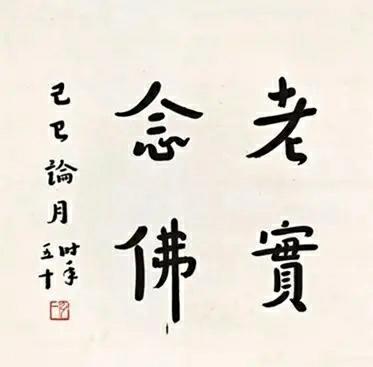 老實
念佛
己巳論月
時年
五十